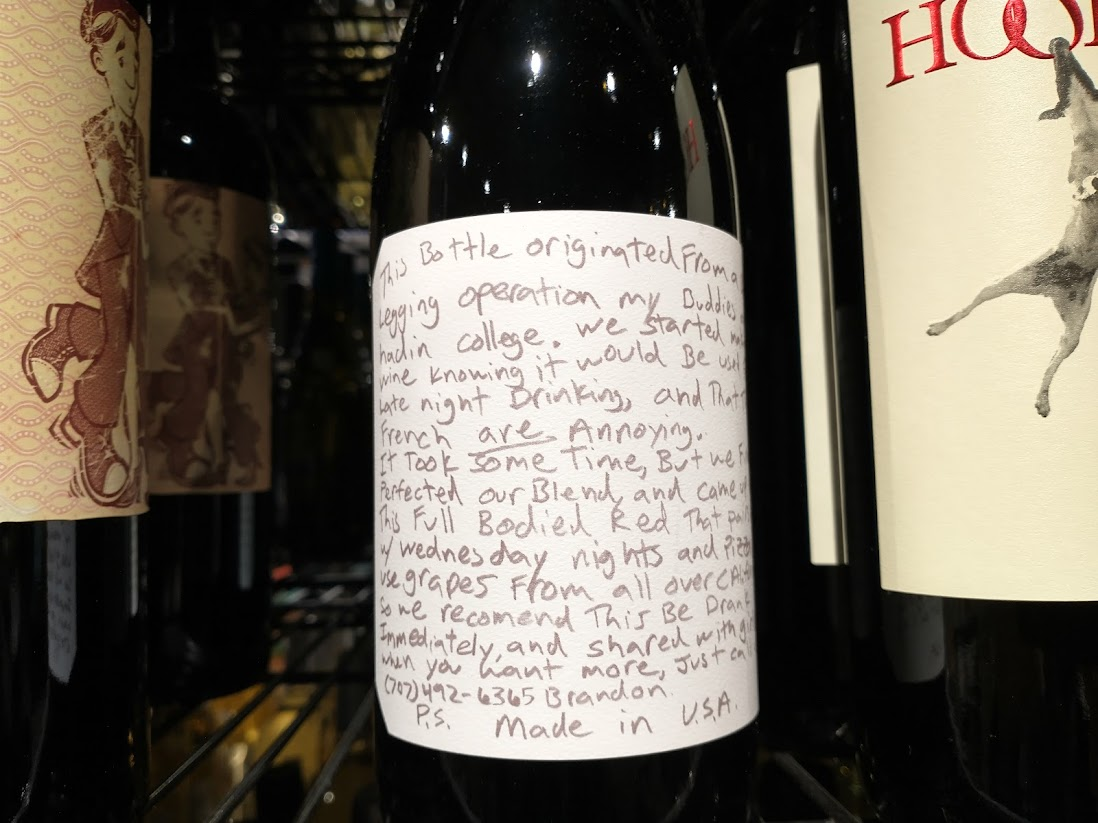 This Bottle originated From a
Legging operation my Buddies
had in college. We started
wine knowing it would Be
Late night Drinking, and That
French are Annoying.
It Took some Time, But we
Perfected our Blend, and came
This Full Bodied Red That
w/ wednesday nights and
use grapes From all over
so we recomend This Be Drank
Immediately, and shared with
when you want more, just call
(707)492-6365 Brandon.
P.S. Made in U.S.A.
HOO
H